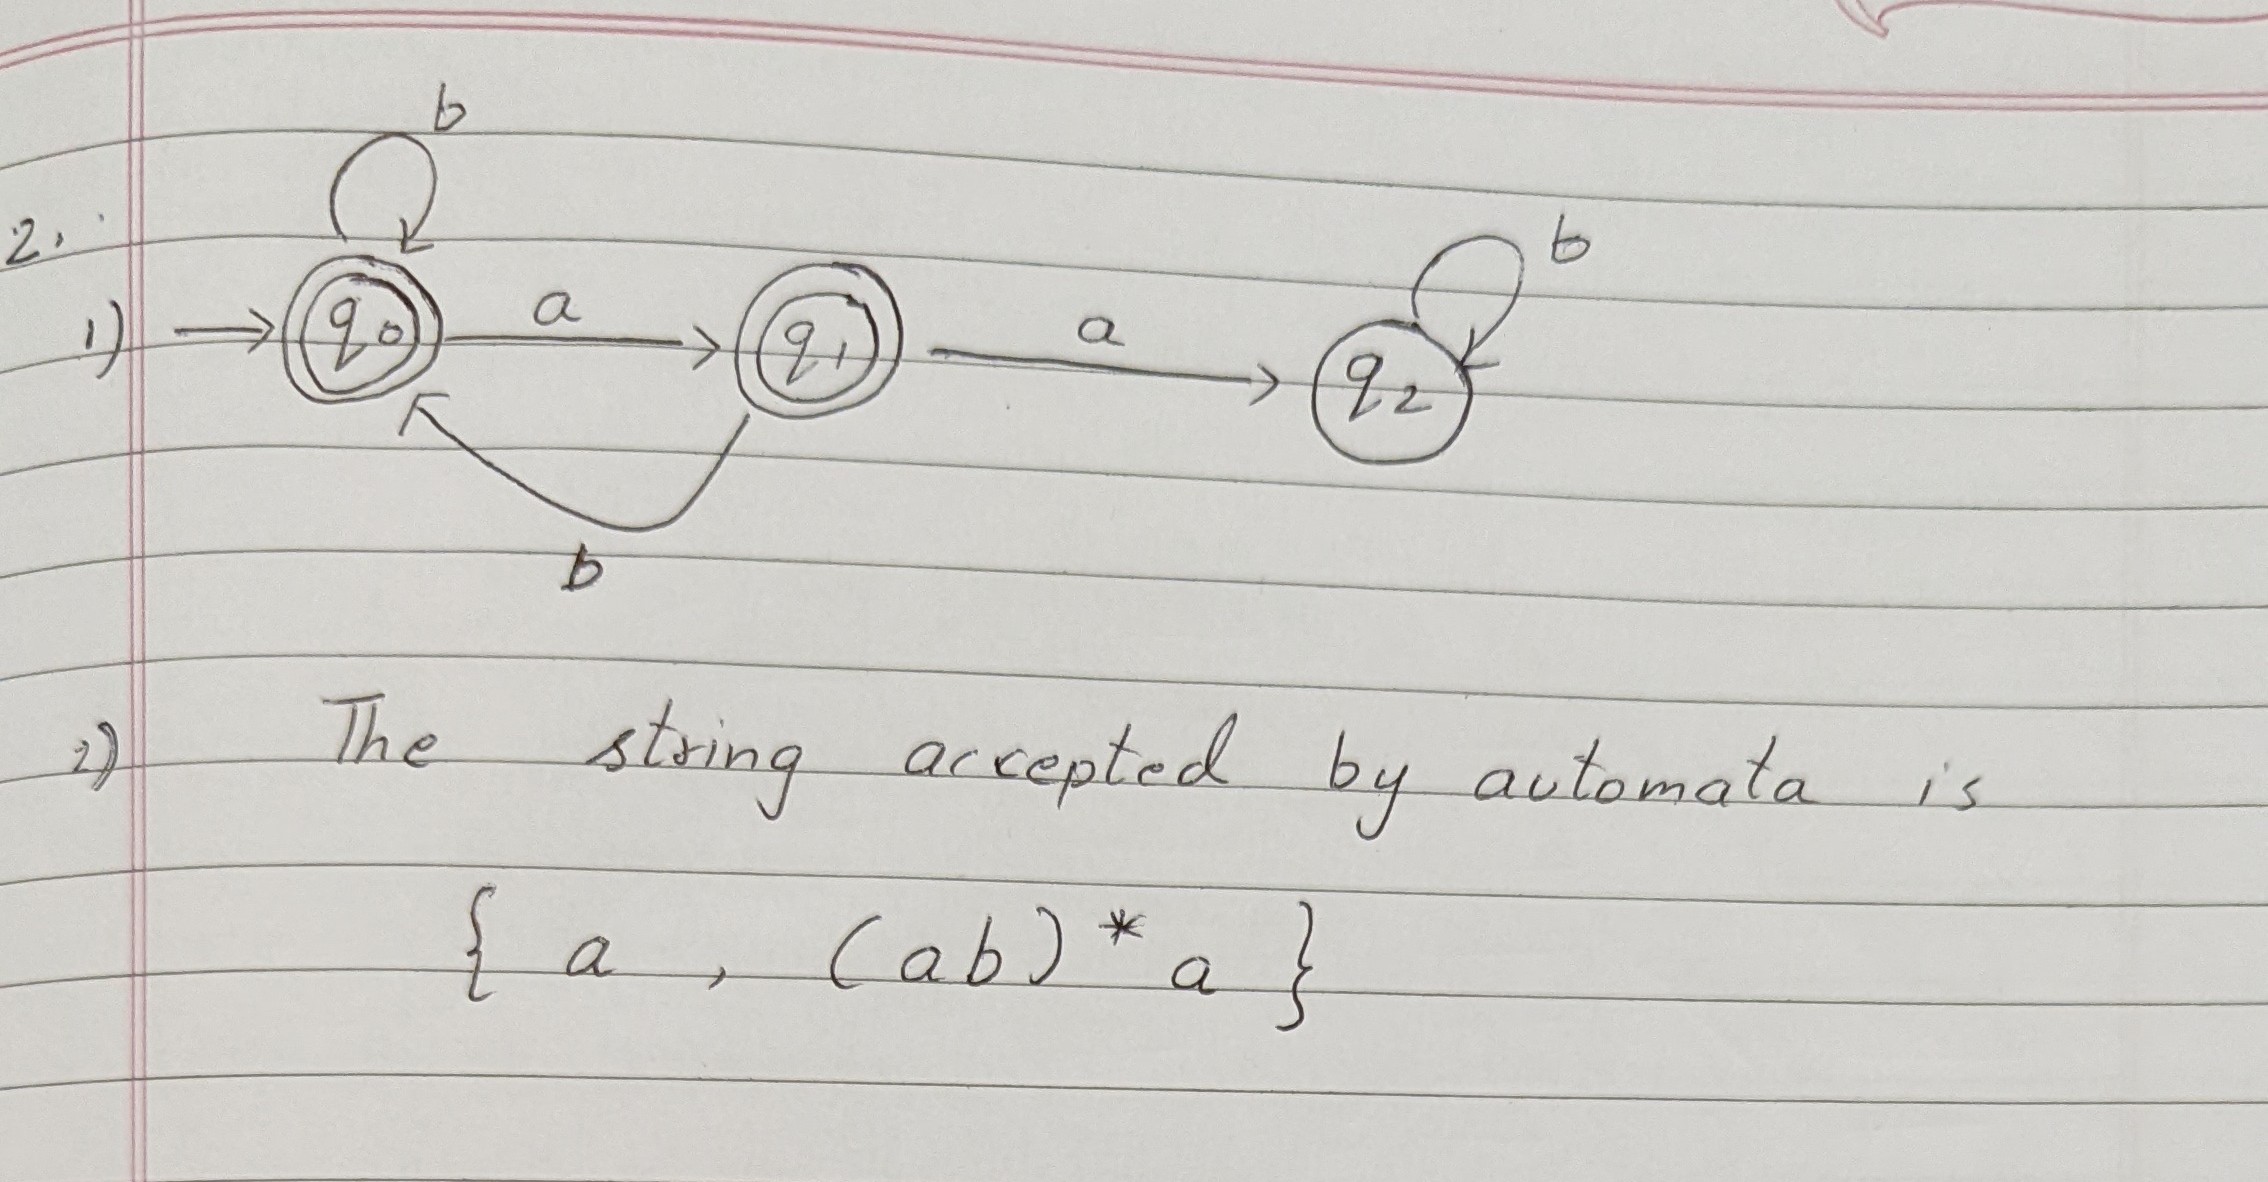 b
b
2.
1) q0 a q1 a q2
b
2) The string accepted by automata is
{ a , (ab)* a }